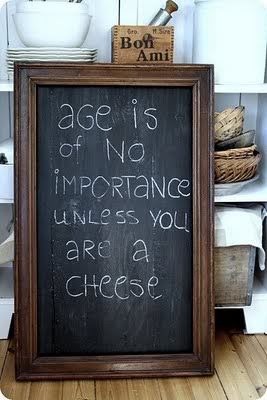 Bon
Ami
age is
of NO
iMPORTANCE
UNLESS YOU
are a
cheese